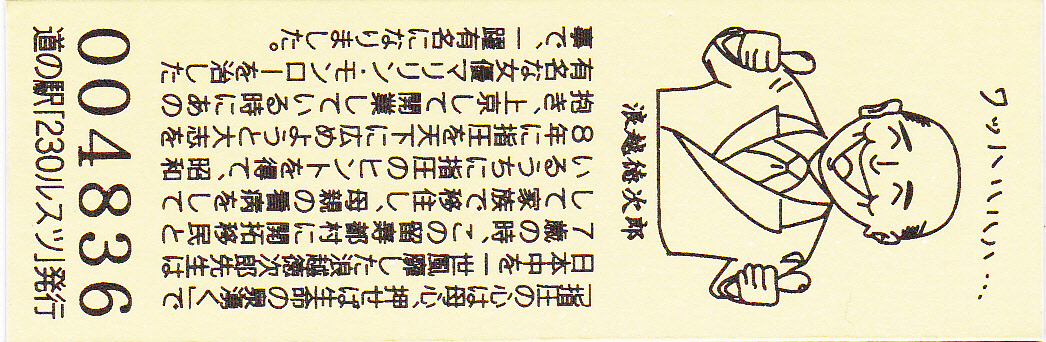 ワッハハハハ…
浪越徳次郎
「指圧の心は母心、押せば生命の泉湧く」で
日本中を一世風靡した浪越徳次郎先生は
7歳の時、この留寿都村に開拓移民と
して家族で移住し、母親の看病をして
いるうちに指圧のヒントを得て、昭和
8年に指圧を天下に広めようと大志を
抱き、上京して開業している時にあの
有名な女優マリリン・モンローを治した
事で、一躍有名になりました。
004836
道の駅「230ルスツ」発行